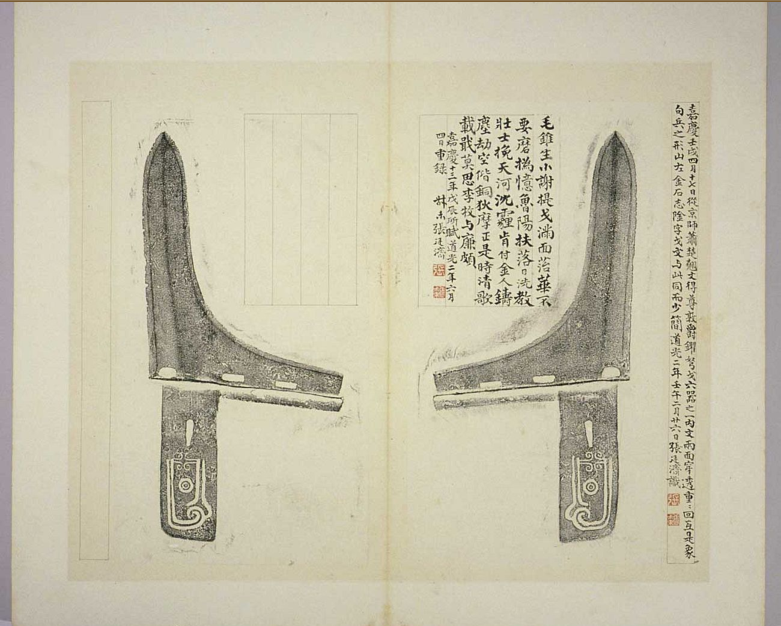 嘉慶壬戌四月十七日從京師蕭楚翹丈得尊敦爵鐙弩戈六器之一內文兩面穿透重二回互是象
句兵之形山左金石志陰字戈文与此同而少簡道光二年壬午二月廿六日張廷濟識
毛錐生小謝提戈滿面落華不
要磨撝憶魯陽扶落日洗教
壯士挽天河沈霾肯付金人鑄
塵劫空偕銅狄摩正是時清歌
載戢莫思李牧与廉頗
嘉慶十三年戊辰所賦道光二年六月
四日重錄 叔未張廷濟